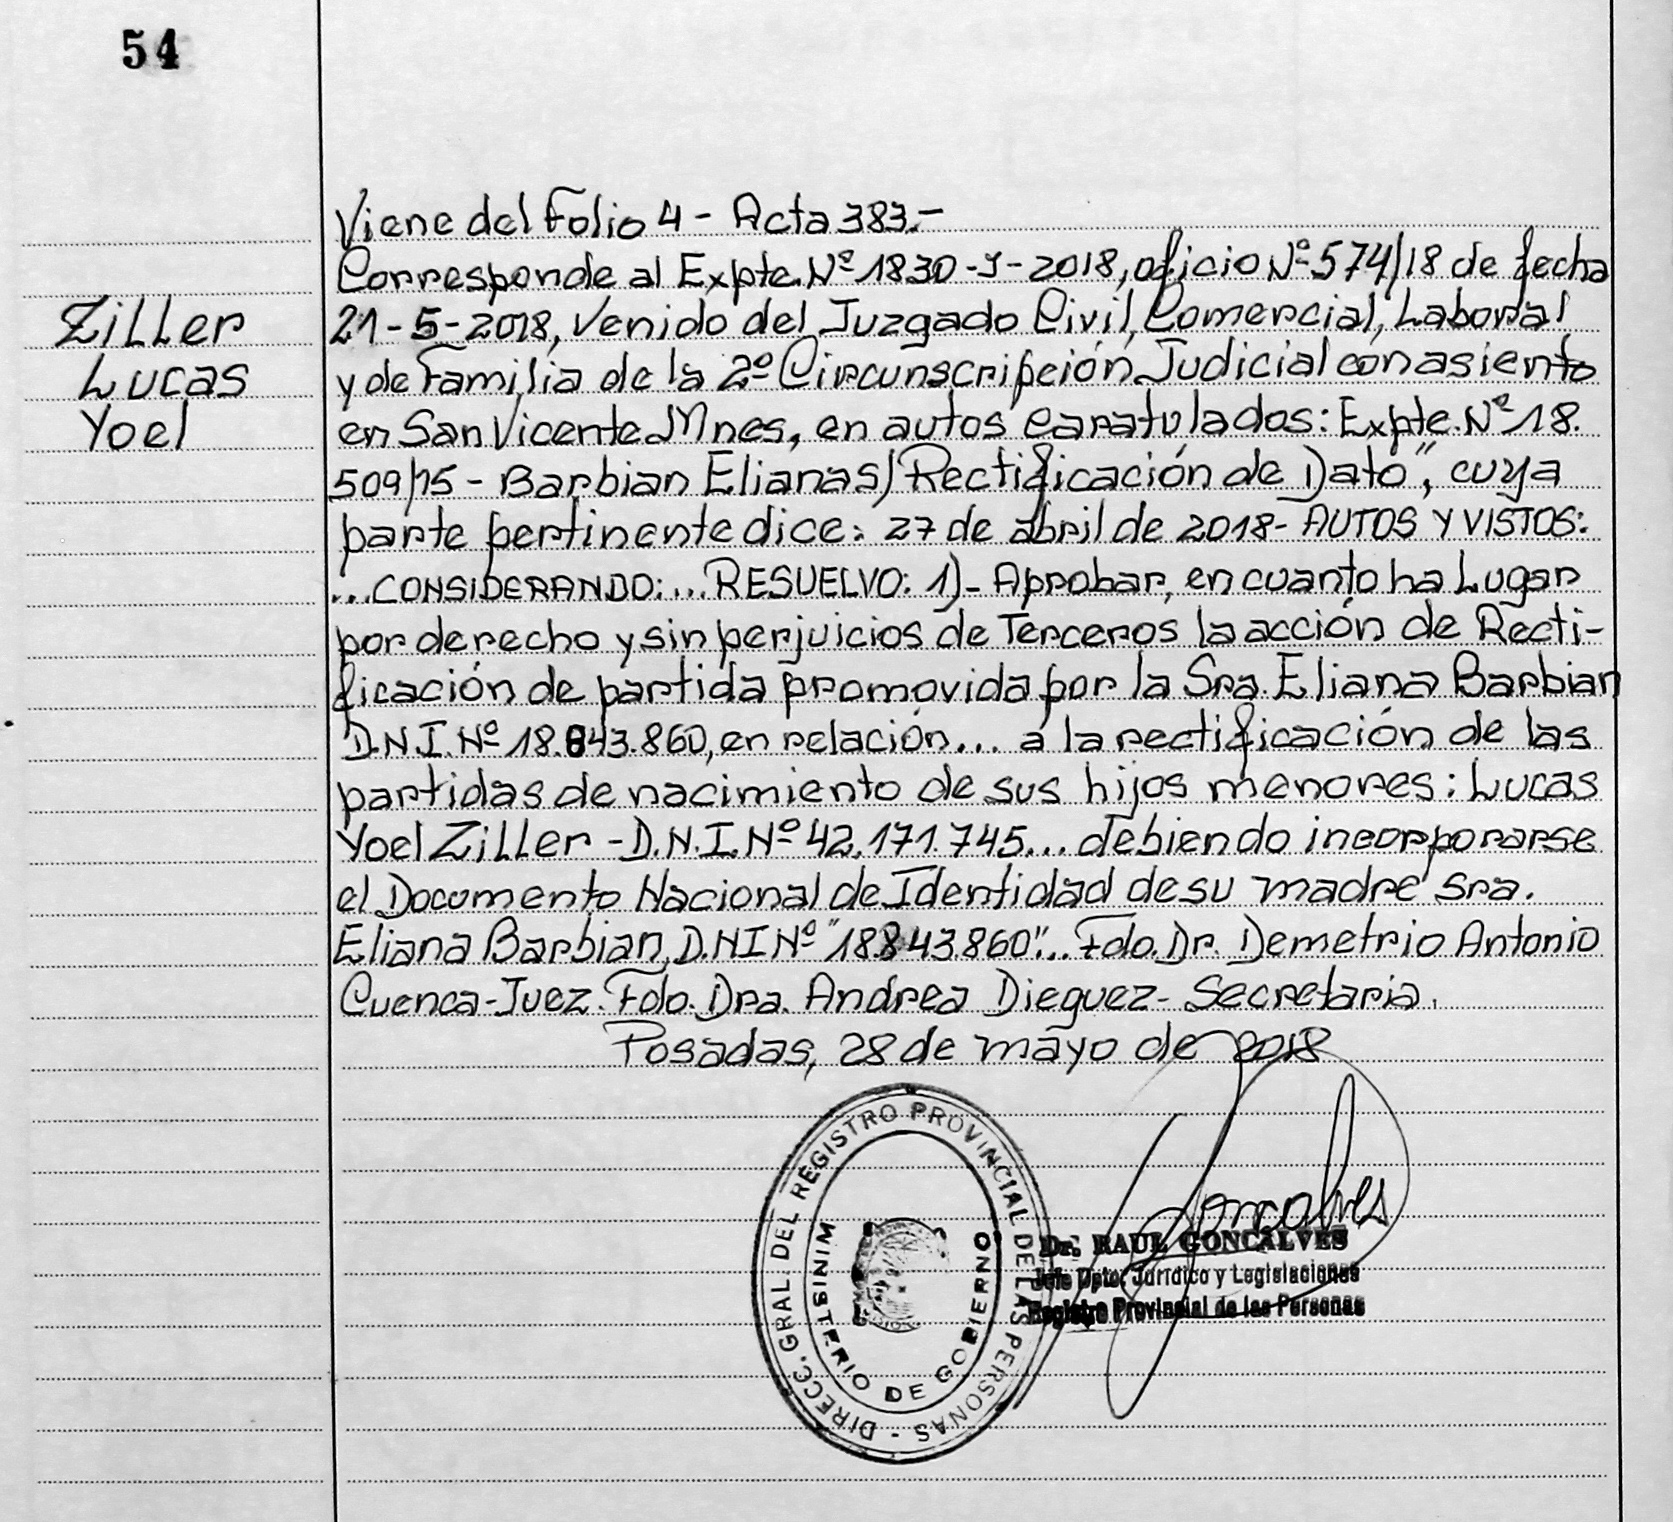 54
Ziller
Lucas
Yoel
Viene del Folio 4 - Acta 383.-
Corresponde al Expte. Nº 1830-J-2018, oficio Nº 574/18 de fecha
21-5-2018, Venido del Juzgado Civil, Comercial, Laboral
y de Familia de la 2º Circunscripción Judicial con asiento
en San Vicente Mnes, en autos caratulados: Expte. Nº 18.
509/15 - Barbian Eliana s/ Rectificación de Dato", cuya
parte pertinente dice: 27 de abril de 2018- AUTOS Y VISTOS:
...CONSIDERANDO:...RESUELVO: 1)- Aprobar, en cuanto ha Lugar
por derecho y sin perjuicios de Terceros la acción de Recti-
ficación de partida promovida por la Sra. Eliana Barbian
D.N.I. Nº 18.843.860, en relación... a la rectificación de las
partidas de nacimiento de sus hijos menores: Lucas
Yoel Ziller - D.N.I. Nº 42.171.745... debiendo incorporarse
el Documento Nacional de Identidad de su madre Sra.
Eliana Barbian, D.N.I Nº "18.843.860"... Fdo. Dr. Demetrio Antonio
Cuenca-Juez. Fdo. Dra. Andrea Dieguez- Secretaria.
Posadas, 28 de mayo de 2018
DIRECC. GRAL. DEL REGISTRO PROVINCIAL DE LAS PERSONAS -
MINISTERIO DE GOBIERNO
Goncalves
Dr. RAUL GONCALVES
Jefe Dpto. Jurídico y Legislaciones
Registro Provincial de las Personas